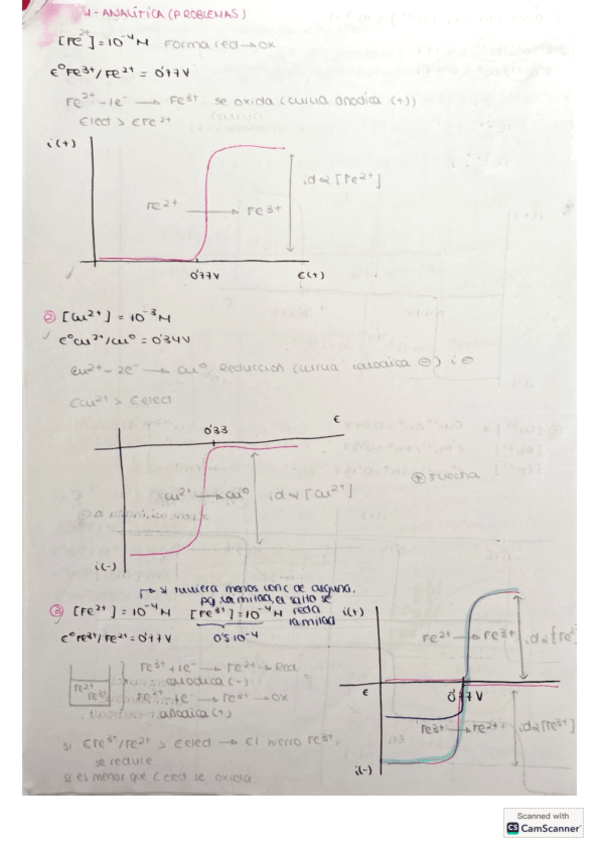 4-ANALÍTICA (PROBLEMAS)
[Fe2+] = 10^-4 M Forma red → ox
ε° Fe3+/Fe2+ = 0'77V
Fe2+ - 1e- → Fe3+ se oxida (curva anodica (+))
Elect > εFe2+
i(+)
id ∝ [Fe2+]
Fe2+ → Fe3+
0'77V
ε(+)
② [Cu2+] = 10^-3 M
ε° Cu2+/Cu° = 0'34V
Cu2+ - 2e- → Cu° Reducción (curva catodica ⊖) i⊖
εCu2+ > Elect
0'33
ε
Cu2+ → Cu°
id ∝ [Cu2+]
i(-)
si tuviera menos conc de alguna,
pq la mitad, el salto se
③ [Fe2+] = 10^-4 M [Fe3+] = 10^-4 M reda
la mitad
ε° Fe3+/Fe2+ = 0'77V 0'5 10^-4
Fe2+
Fe3+
Fe3+ + 1e- → Fe2+ → Red
catodica (-)
Fe2+ + e- → Fe3+ → OX
anodica (+)
si εFe3+/Fe2+ > Elect → El hierro Fe3+,
se reduce
si es menor que Elect se oxida
i(+)
Fe2+ → Fe3+
id ∝ [Fe2
ε
0'77V
Fe3+ → Fe2+
id ∝ [Fe3+]
i(-)
Scanned with
CS CamScanner